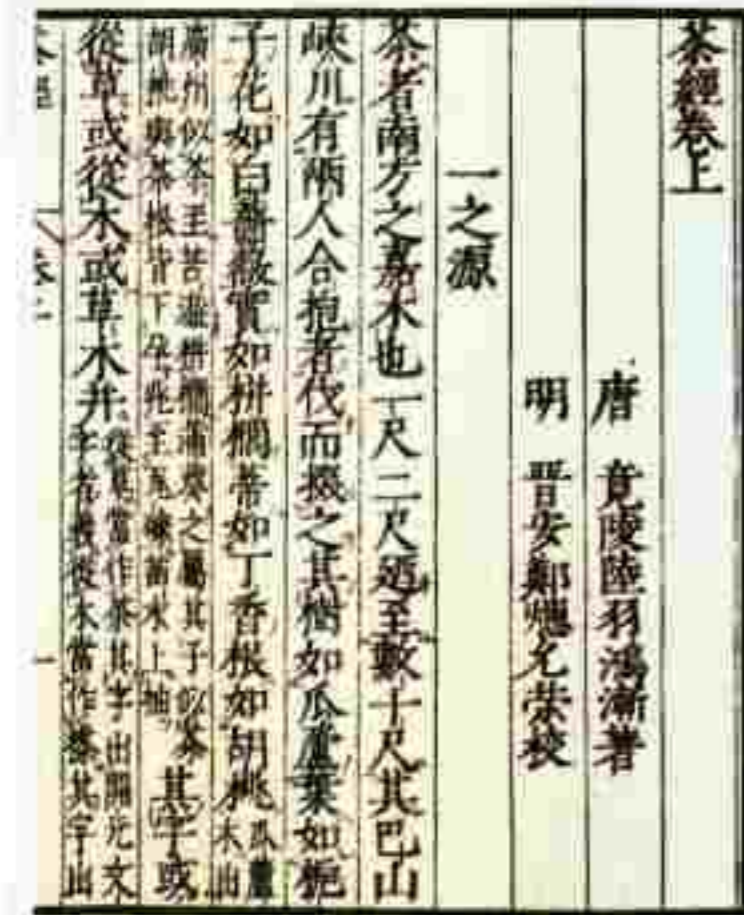 茶經卷上
唐 竟陵陸羽鴻漸著
明 晉安鄭熜允榮校
一之源
茶者南方之嘉木也一尺二尺廼至數十尺其巴山
峽川有兩人合抱者伐而掇之其樹如瓜蘆葉如梔
子花如白薔薇實如栟櫚蒂如丁香根如胡桃瓜蘆木出
廣州似茶至苦澁栟櫚蒲葵之屬其子似茶
胡桃與茶根皆下孕兆至瓦礫苗木上抽其字或
從草或從木或草木并從草當作茶其字出開元文
字音義從木當作㮑其字出